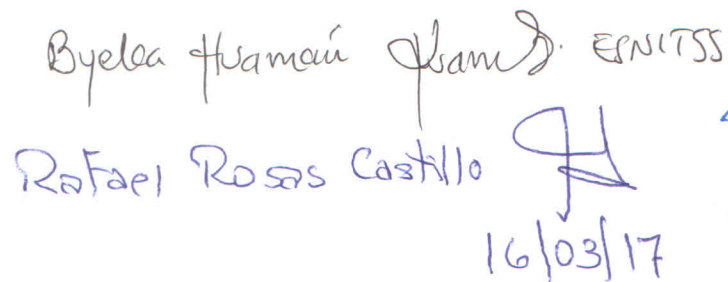 Byelca Huamaní ESNITSS
Rafael Rosas Castillo
16/03/17